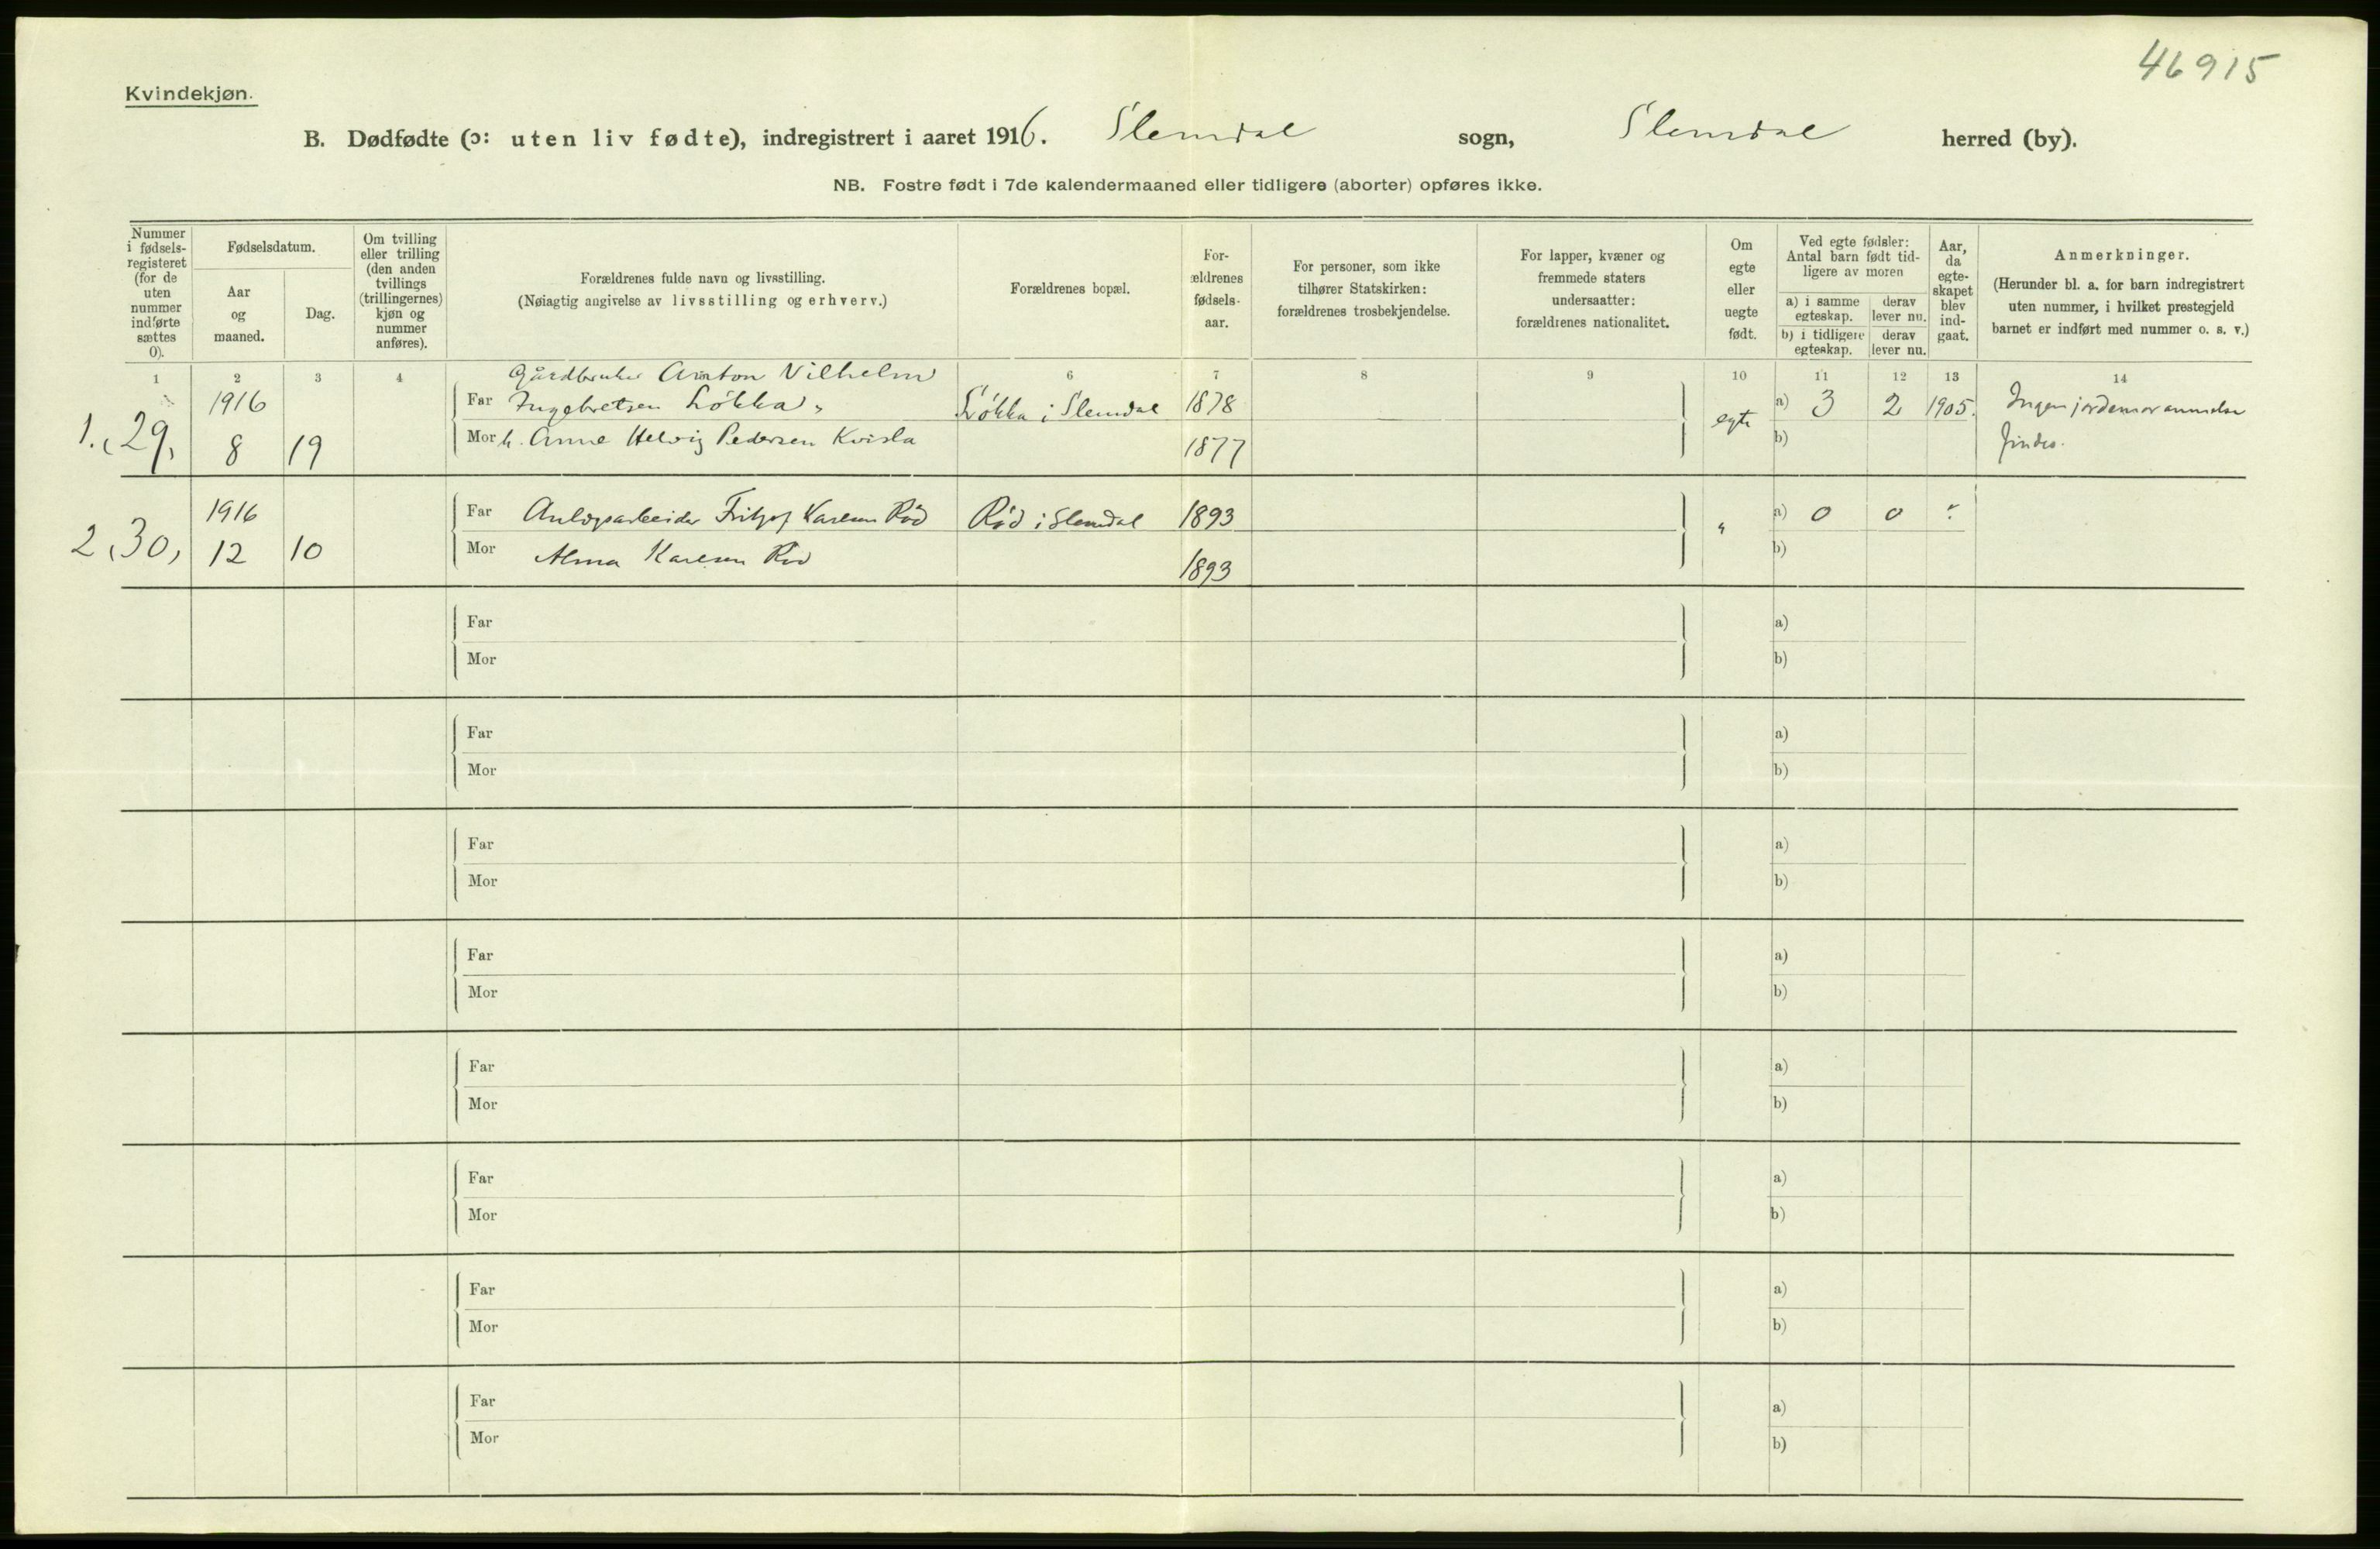 46915
Kvindekjøn.
B. Dødfødte (ɔ: uten liv fødte), indregistrert i aaret 1916. Slemdal sogn, Slemdal herred (by).
NB. Fostre født i 7de kalendermaaned eller tidligere (aborter) opføres ikke.
Nummer i fødsels-registeret (for de uten nummer indførte sættes 0).
Fødselsdatum.
Aar og maaned.
Dag.
Om tvilling eller trilling (den anden tvillings (trillingernes) kjøn og nummer anføres).
Forældrenes fulde navn og livsstilling.
(Nøiagtig angivelse av livsstilling og erhverv.)
Forældrenes bopæl.
For-ældrenes fødsels-aar.
For personer, som ikke tilhører Statskirken: forældrenes trosbekjendelse.
For lapper, kvæner og fremmede staters undersaatter: forældrenes nationalitet.
Om egte eller uegte født.
Ved egte fødsler: Antal barn født tid-ligere av moren
a) i samme egteskap.
derav lever nu.
b) i tidligere egteskap.
derav lever nu.
Aar, da egte-skapet blev ind-gaat.
Anmerkninger.
(Herunder bl. a. for barn indregistrert uten nummer, i hvilket prestegjeld barnet er indført med nummer o. s. v.)
1 2 3 4 6 7 8 9 10 11 12 13 14
Gårdbruker Anton Vilhelm
1., 29, 1916 Far Ingebretsen Løkka, Løkka i Slemdal 1878 egte a) 3 2 1905. Ingen jordmoranmelse
8 19 Mor h. Anne Helvig Pedersen Kvisla 1877 b) findes.
2, 30, 1916 Far Anlegsarbeider Fritjof Karlsen Rød Rød i Slemdal 1893 " a) 0 0 :
12 10 Mor Alma Karlsen Rød 1893 b)
Far a)
Mor b)
Far a)
Mor b)
Far a)
Mor b)
Far a)
Mor b)
Far a)
Mor b)
Far a)
Mor b)
Far a)
Mor b)
Far a)
Mor b)